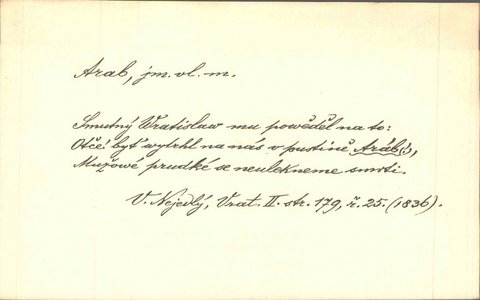 Arab, jm. vl. m.
Smutný Wratislaw mu powěděl na to:
Otče! byť wytrhl na nás v pustině Aráb(:),
Mužowé prudké se neulekneme smrti.
V. Nejedlý, Vrat. II. str. 179, ř. 25. (1836).